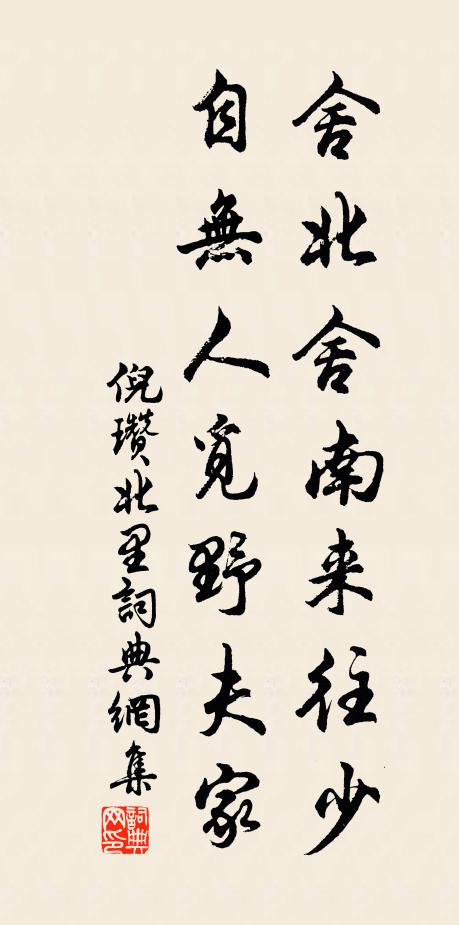 舍北舍南来往少
自無人覓野夫家
倪瓚北里詞典網集
詞典網印